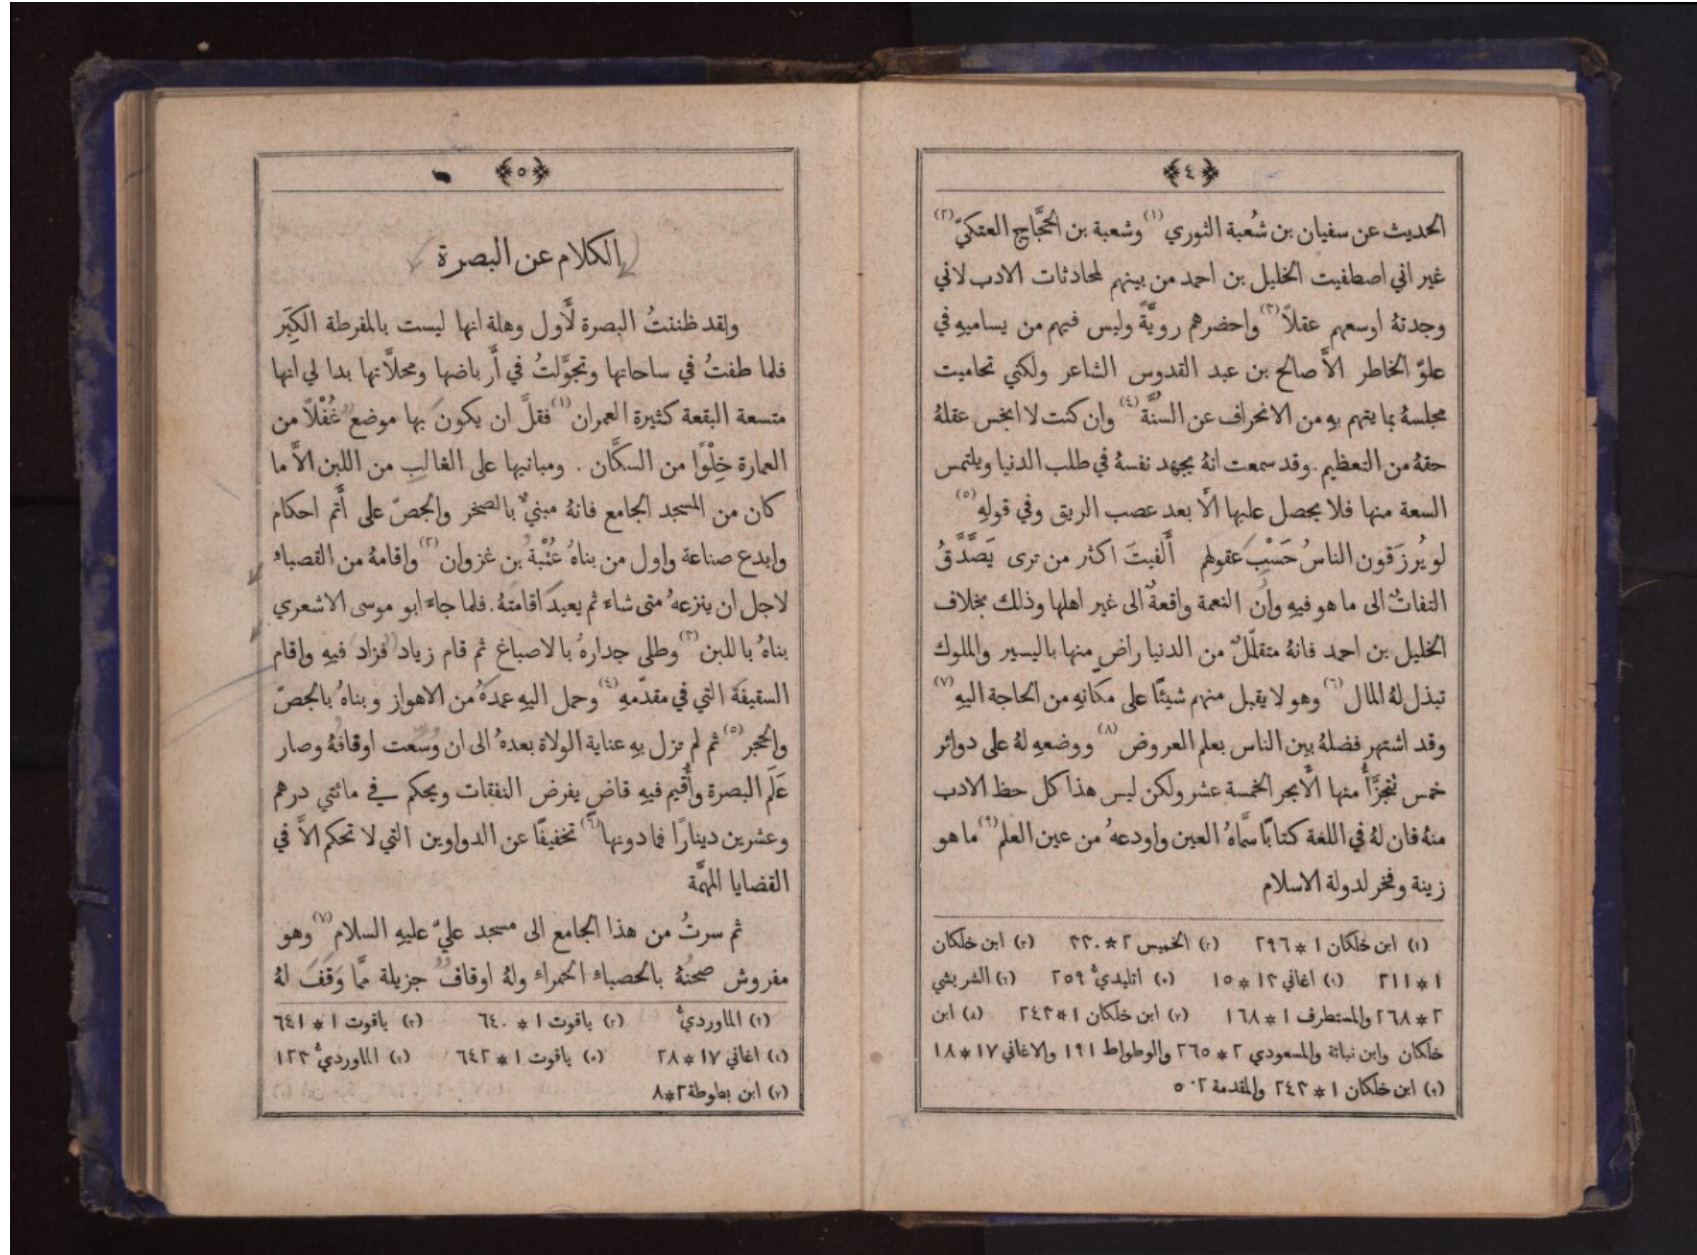 ﴿٤﴾
الحديث عن سفيان بن شُعبة الثوري (١) وشعبة بن الحجَّاج العتكيّ (٢)
غير اني اصطفيت الخليل بن احمد من بينهم لمحادثات الادب لاني
وجدتهُ اوسعهم عقلاً (٣) واحضرهم رويَّةً وليس فيهم من يساميهِ في
علوّ الخاطر الاَّ صالح بن عبد القدوس الشاعر ولكني تحاميت
مجلسهُ بما يتهم بهِ من الانحراف عن السنَّة (٤) وان كنت لا ابخس عقلهُ
حقهُ من التعظيم . وقد سمعت انهُ يجهد نفسهُ في طلب الدنيا ويلتمس
السعة منها فلا يحصل عليها الاَّ بعد عصب الريق وفي قولهِ (٥)
لو يُرزَقون الناسُ حَسْبَ عقولهم أَلفيتَ اكثر من ترى يَصَّدَّقُ
التفاتٌ الى ما هو فيهِ وأن النعمة واقعةٌ الى غير اهلها وذلك بخلاف
الخليل بن احمد فانهُ متقلّلٌ من الدنيا راضٍ منها باليسير والملوك
تبذل لهُ المال (٦) وهو لا يقبل منهم شيئًا على مكانهِ من الحاجة اليهِ (٧)
وقد اشتهر فضلهُ بين الناس بعلم العروض (٨) ووضعهِ لهُ على دوائر
خمس تُجزَّأُ منها الأَبحر الخمسة عشر ولكن ليس هذا كل حظ الادب
منهُ فان لهُ في اللغة كتابًا سمَّاهُ العين واودعهُ من عين العلم (٩) ما هو
زينة وفخر لدولة الاسلام
(١) ابن خلكان ١ * ٢٩٦ (٢) الخميس ٢ * ٣٣٠ (٣) ابن خلكان
١ * ٢١١ (٤) اغاني ١٣ * ١٥ (٥) اتليديّ ٢٥٩ (٦) الشريشي
٢ * ٢٦٨ والمستطرف ١ * ١٦٨ (٧) ابن خلكان ١ * ٢٤٣ (٨) ابن
خلكان وابن نباتة والمسعودي ٢ * ٢٦٥ والوطواط ١٩١ والاغاني ١٧ * ١٨
(٩) ابن خلكان ١ * ٢٤٣ والمقدمة ٥٠٢
﴿٥﴾
الكلام عن البصرة
ولقد ظننتُ البصرة لأَول وهلة انها ليست بالمفرطة الكِبَر
فلما طفتُ في ساحاتها وتجوَّلتُ في أَرباضها ومحلاَّتها بدا لي انها
متسعة البقعة كثيرة العمران (١) فقلَّ ان يكونَ بها موضع غُفْلاً من
العمارة خِلْوًا من السكَّان . ومبانيها على الغالبِ من اللبن الاَّ ما
كان من المسجد الجامع فانهُ مبنيٌّ بالصخر والجصّ على أَتم احكام
وابدع صناعة واول من بناهُ عُتْبةُ بن غزوان (٢) واقامهُ من القصباء
لاجل ان ينزعهُ متى شاء ثم يعيدَ اقامتهُ . فلما جاء ابو موسى الاشعري
بناهُ باللبن (٣) وطلى جدارهُ بالاصباغ ثم قام زياد فزاد فيهِ واقام
السقيفة التي في مقدّمهِ (٤) وحمل اليهِ عمدَهُ من الاهواز وبناهُ بالجصّ
والحجر (٥) ثم لم تزل بهِ عناية الولاة بعدهُ الى ان وُسّعت اوقافهُ وصار
عَلَم البصرة وأُقيم فيهِ قاضٍ يفرض النفقات ويحكم في مائتي درهم
وعشرين دينارًا فما دونها (٦) تخفيفًا عن الدواوين التي لا تحكم الاَّ في
القضايا المهمَّة
ثم سرتُ من هذا الجامع الى مسجد عليّ عليهِ السلام (٧) وهو
مفروش صحنُهُ بالحصباء الحمراء ولهُ اوقافٌ جزيلة ممَّا وَقَفَ لهُ
(١) الماورديّ (٢) ياقوت ١ * ٦٤٠ (٣) ياقوت ١ * ٦٤١
(٤) اغاني ١٧ * ٢٨ (٥) ياقوت ١ * ٦٤٢ (٦) الماورديّ ١٢٣
(٧) ابن بطوطة ٢*٨